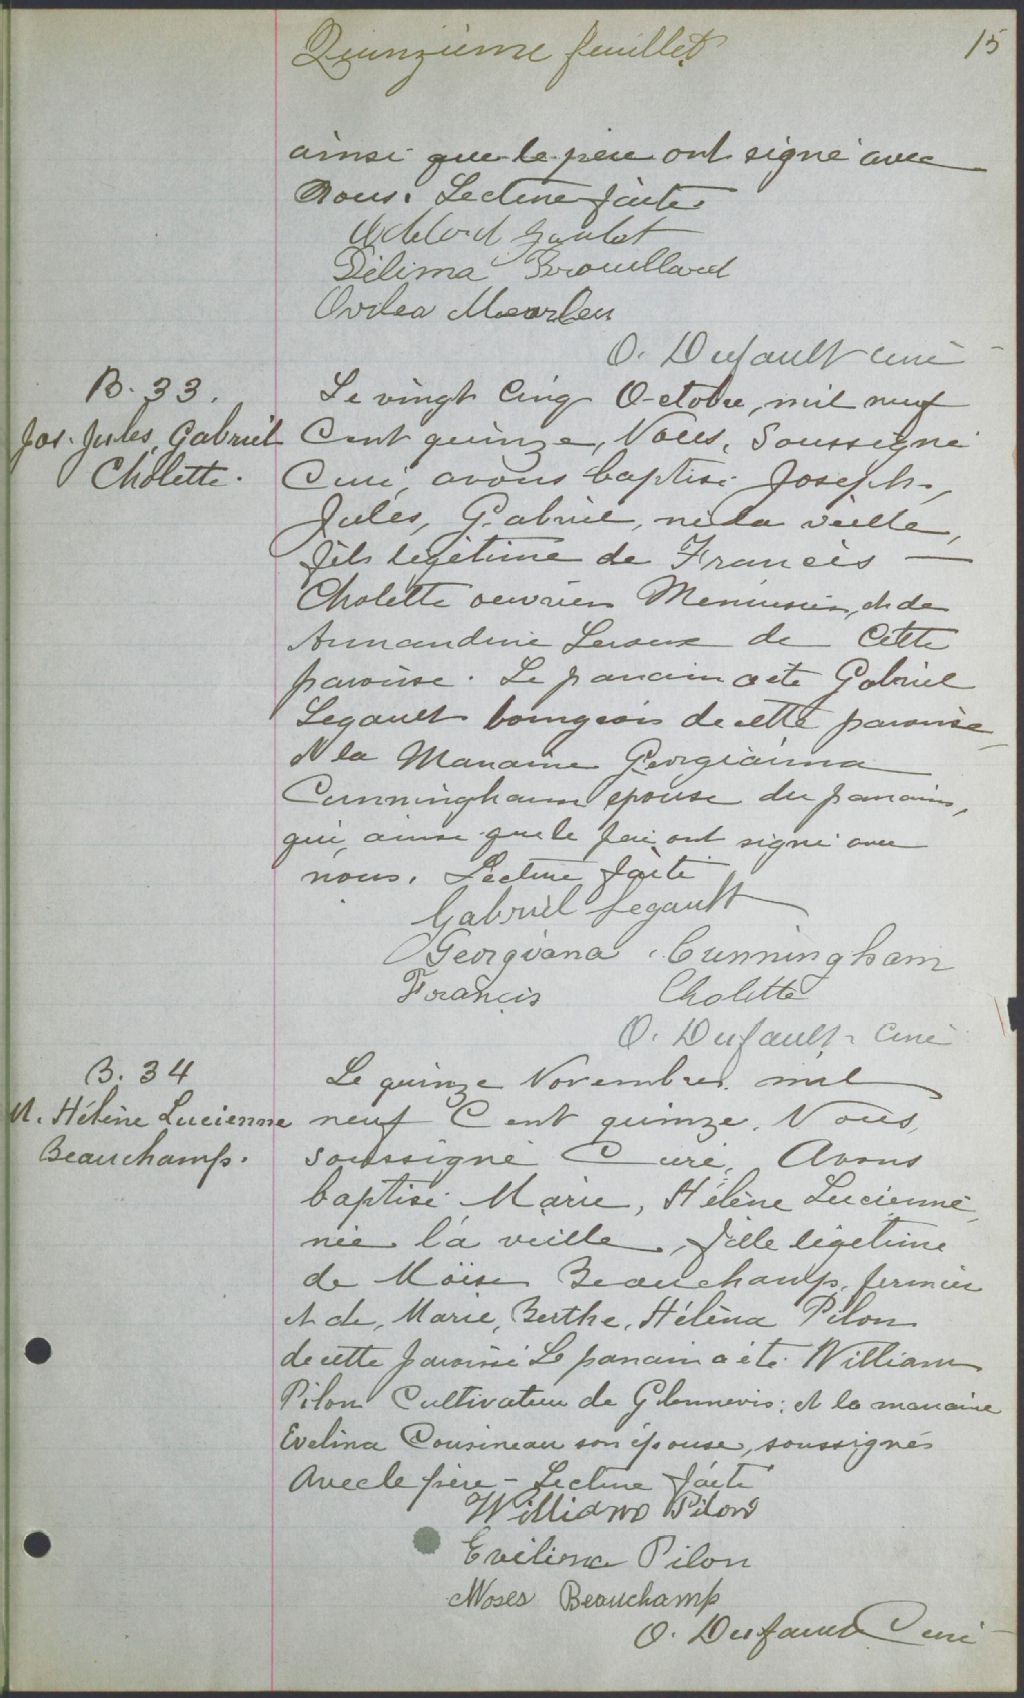 Quinzième feuillet
15
ainsi que le père ont signé avec
Nous. Lecture faite
Goulet
Délima Brouillard
Ovilea
O. Dufault curé
B. 33.
Jos. Jules, Gabriel
Cholette.
Le vingt Cinq Octobre, mil neuf
Cent quinze, Nous, Soussigné
Curé, avons baptisé Joseph,
Jules, Gabriel, né la veille,
fils légitime de Francis —
Cholette ouvrier Menuisier, et de
Armandine Leroux de Cette
paroisse. Le parrain a été Gabriel
Legault bourgeois de cette paroisse,
et la Marraine Georgianna
Cunningham épouse du parrain,
qui, ainsi que le père, ont signé avec
nous. Lecture faite
Gabriel Legault
Georgiana Cunningham
Francis Cholette
O. Dufault curé
B. 34
M. Hélène Lucienne
Beauchamp.
Le quinze Novembre mil
neuf Cent quinze. Nous,
soussigné Curé, Avons
baptisé Marie, Hélène Lucienne,
née la veille, fille légitime
de Moïse Beauchamp, fermier
et de, Marie, Berthe, Hélèna Pilon
de cette paroisse Le parrain a été William
Pilon Cultivateur de Glennevis; et la marraine
Evelina Cousineau son épouse, soussignés
Avec le père – Lecture faite
William Pilon
Eveliena Pilon
Moses Beauchamp
O. Dufault Curé